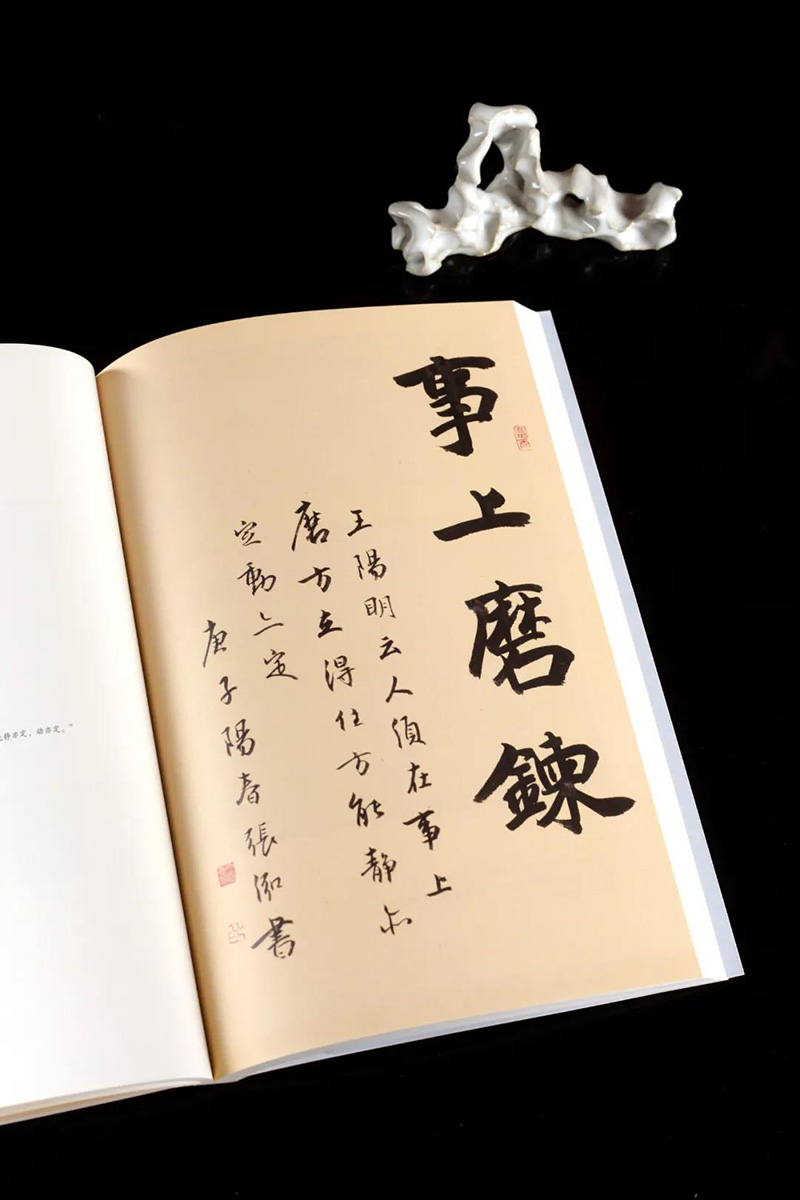 事上磨鍊
王陽明云人須在事上
磨方立得住方能靜亦
定動亦定
庚子陽春張書
静亦定,动亦定。”